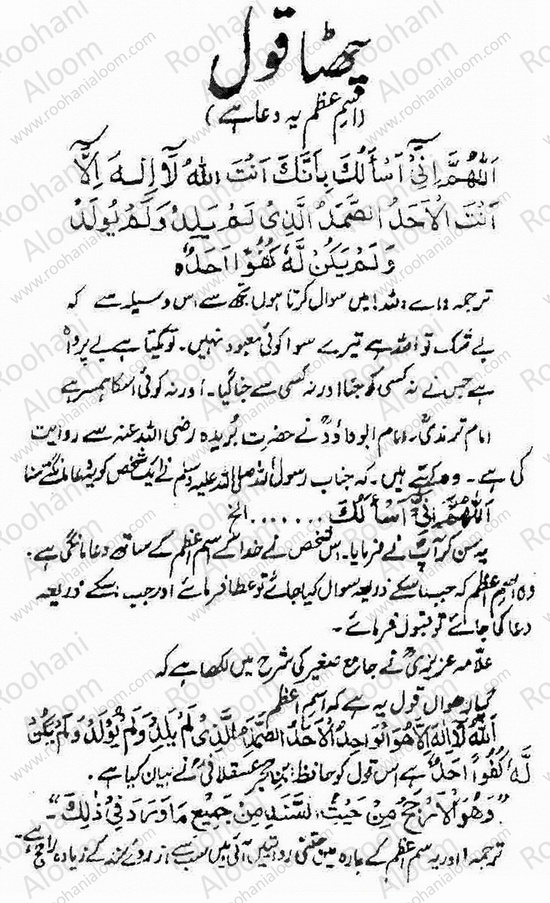 چھٹا قول
(اسمِ اعظم یہ دعا ہے)
اَللّٰهُمَّ اِنِّیْ اَسْأَلُكَ بِاَنَّكَ اَنْتَ اللّٰهُ لَآ اِلٰـهَ اِلَّآ
اَنْتَ الْاَحَدُ الصَّمَدُ الَّذِیْ لَمْ یَلِدْ وَلَمْ یُوْلَدْ
وَلَمْ یَكُنْ لَّهٗ كُفُوًا اَحَدٌ ہ
ترجمہ: اے اللہ! میں سوال کرتا ہوں تجھ سے اس وسیلہ سے کہ
بے شک تو اللہ ہے تیرے سوا کوئی معبود نہیں۔ تو یکتا ہے بے پرواہ
ہے جس نے نہ کسی کو جنا اور نہ کسی سے جنا گیا۔ اور نہ کوئی اسکا ہمسر ہے
امام ترمذیؒ۔ امام ابوداؤدؒ نے حضرت بُریدہ رضی اللہ عنہ سے روایت
کی ہے۔ وہ کہتے ہیں۔ کہ جناب رسول اللہ صلی اللہ علیہ وسلم نے ایک شخص کو یہ دعا مانگتے سنا
اَللّٰهُمَّ اِنِّیْ اَسْأَلُكَ ....... الخ
یہ سن کر آپؐ نے فرمایا۔ اس شخص نے خدا کے اسم اعظم کے ساتھ دعا مانگی ہے۔
وہ اسمِ اعظم کہ جب اسکے ذریعہ سوال کیا جائے تو عطا فرمائے اور جب اسکے ذریعہ
دعا کی جائے تو قبول فرمائے۔
علّامہ عزیزیؒ نے جامع صغیر کی شرح میں لکھا ہے کہ
گیارھواں قول یہ ہے کہ اسمِ اعظم
اَللّٰهُ لَا اِلٰهَ اِلَّا هُوَ الْوَاحِدُ الْاَحَدُ الصَّمَدُ الَّذِیْ لَمْ یَلِدْ وَلَمْ یُوْلَدْ وَلَمْ یَكُنْ
لَّهٗ كُفُوًا اَحَدٌ ہے اس قول کو حافظ ابن حجر عسقلانیؒ نے بیان کیا ہے۔
"وَهُوَ الْاَرْجَحُ مِنْ حَیْثُ السَّنَدِ مِنْ جَمِیْعِ مَا وَرَدَ فِیْ ذٰلِكَ"۔
ترجمہ: اور یہ اسم اعظم کے بارہ میں جتنی روایتیں آئی ہیں سب سے از روئے سند کے زیادہ راجح ہے۔
Roohani Aloom
www.roohanialoom.com